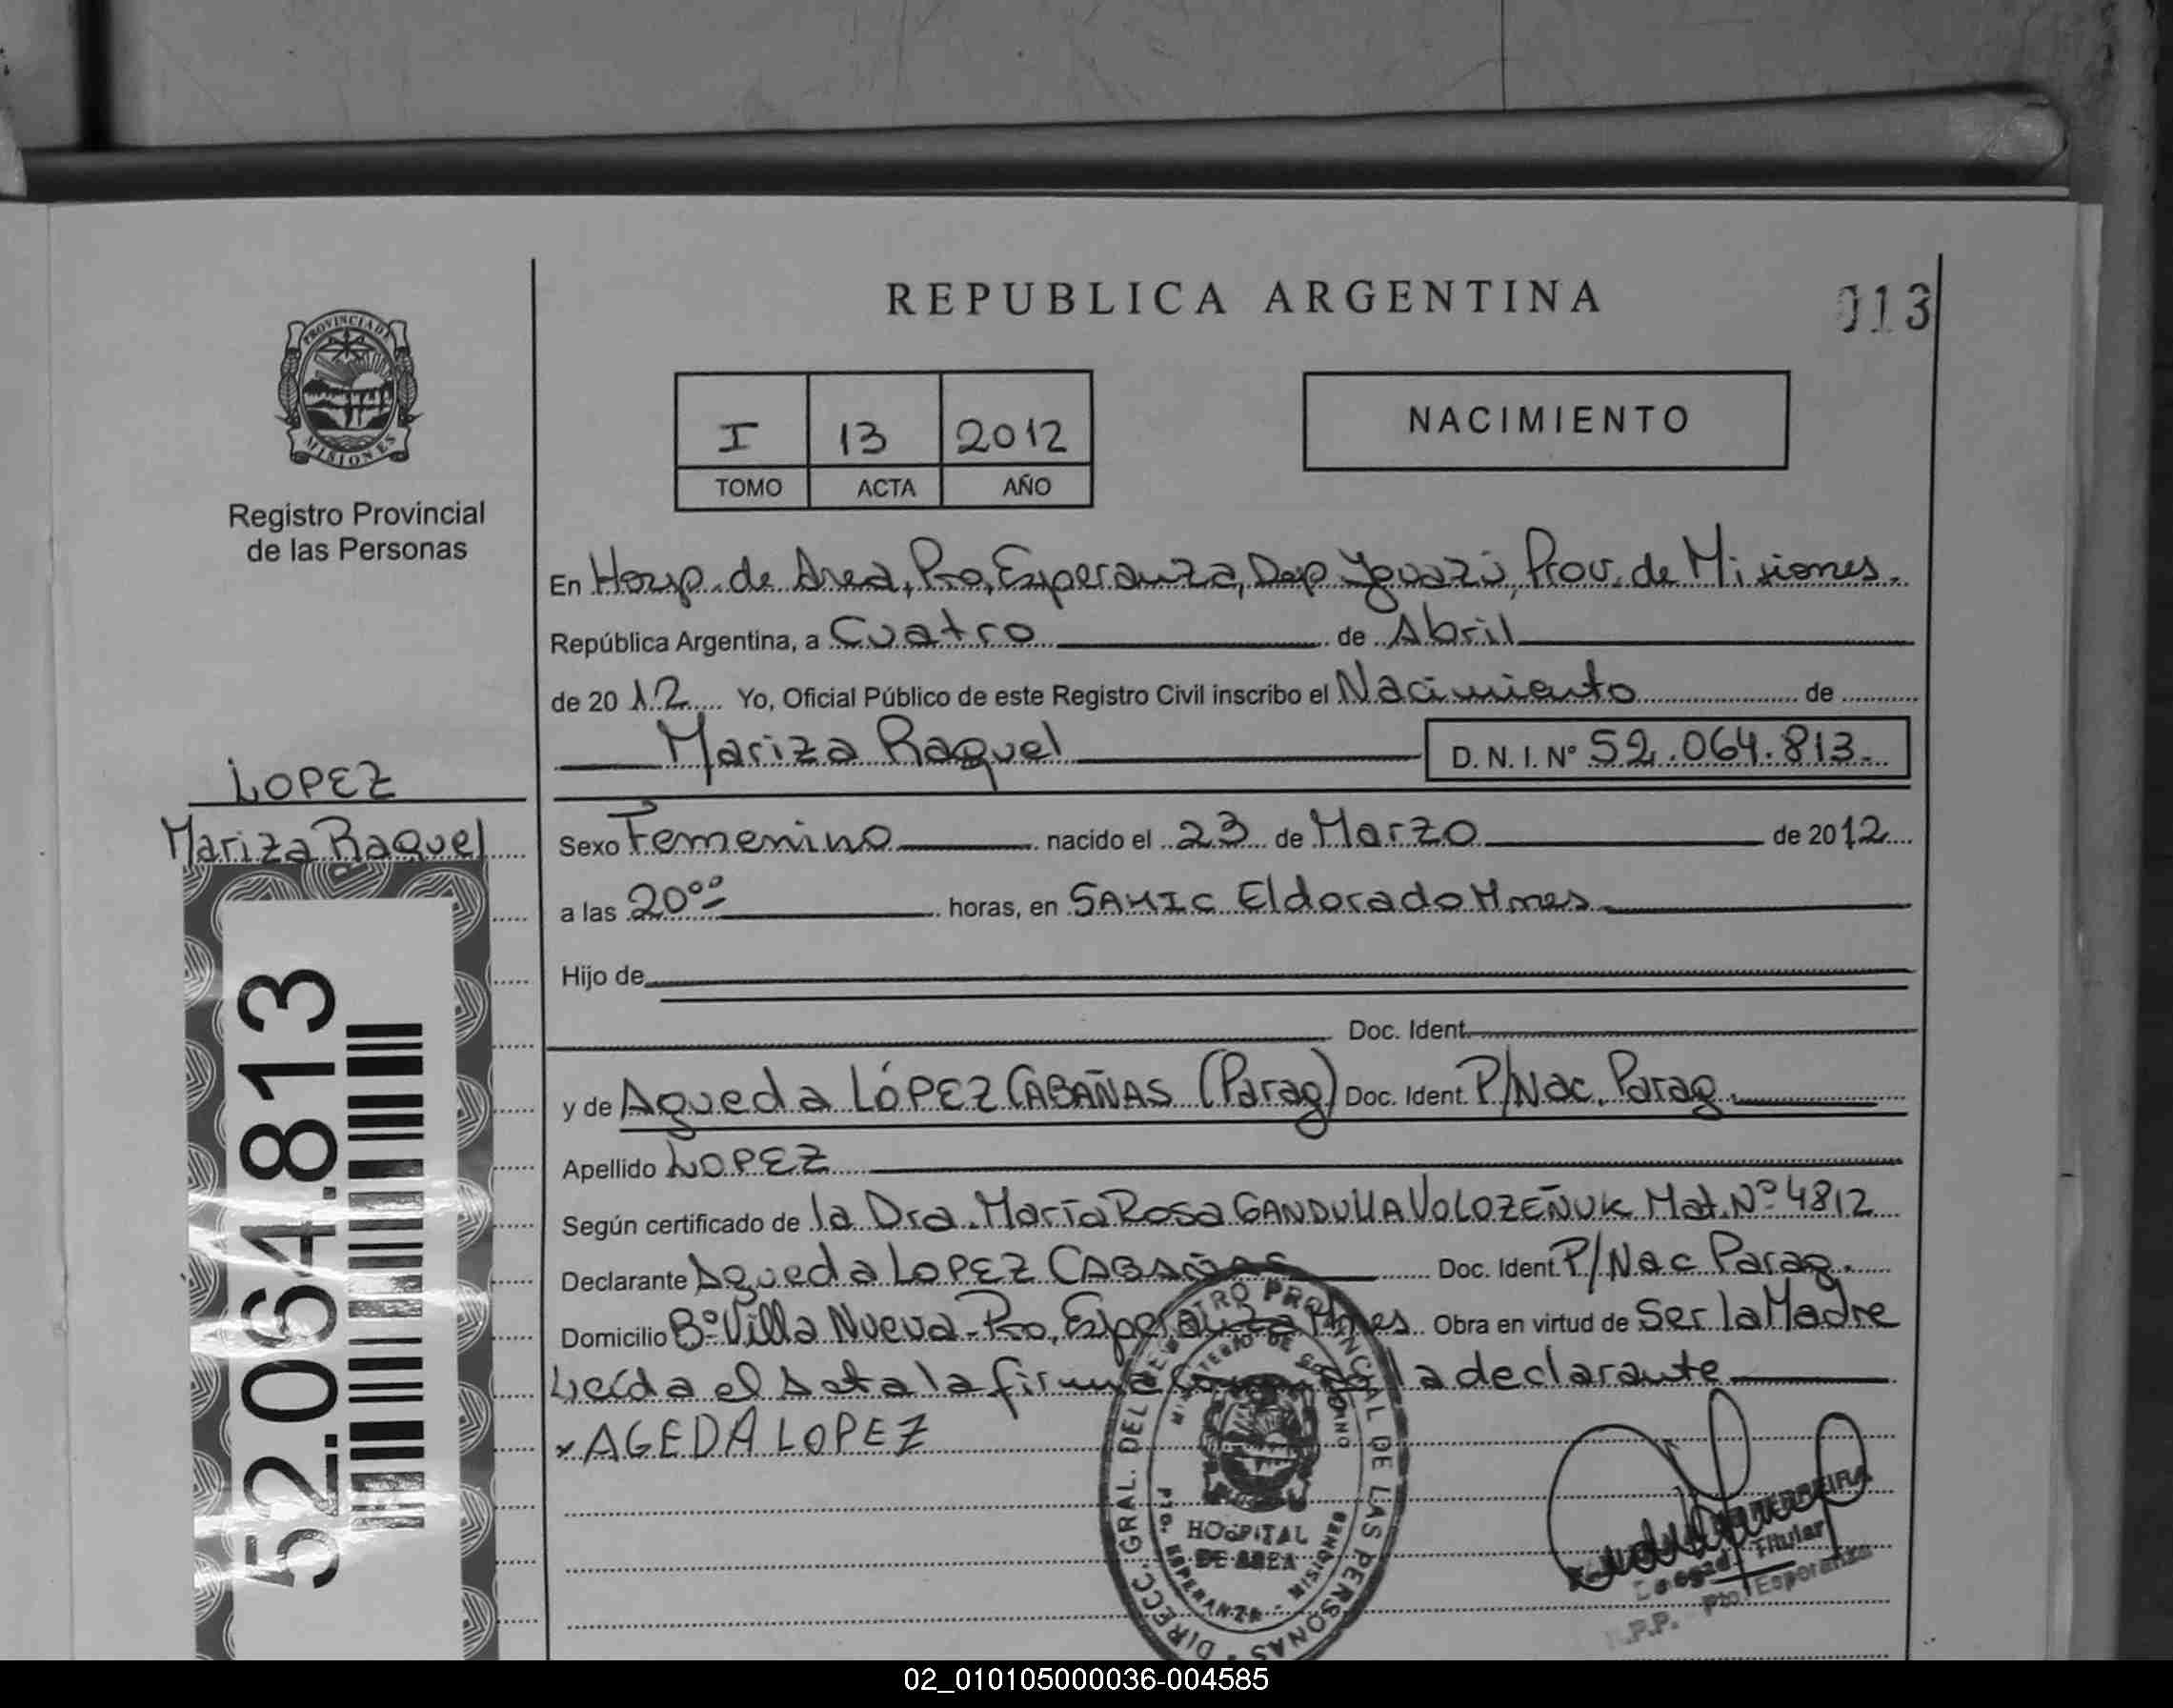 REPUBLICA ARGENTINA
013
PROVINCIA D
MISIONES
Registro Provincial
de las Personas
I 13 2012
TOMO ACTA AÑO
NACIMIENTO
En Hosp. de Area, Pto, Esperanza, Dep Yguazú, Prov. de Misiones.
República Argentina, a Cuatro de Abril
de 2012 Yo, Oficial Público de este Registro Civil inscribo el Nacimiento de
Mariza Raquel D. N. I. Nº 52.064.813.
LOPEZ
Mariza Raquel
Sexo Femenino nacido el 23 de Marzo de 2012
a las 20ºº horas, en SAMIC Eldorado Mnes
Hijo de
Doc. Ident.
y de Agueda LÓPEZ CABAÑAS (Parag) Doc. Ident. P/Nac. Parag.
Apellido LOPEZ
Según certificado de la Dra. María Rosa GANDULLA VOLOZEÑUK Mat. Nº 4812
Declarante Agueda LOPEZ CABAÑAS Doc. Ident. P/Nac Parag.
Domicilio Bº Villa Nueva - Pto, Esperanza Mnes Obra en virtud de Ser la Madre
Leída el Acta la firma la declarante
x AGEDA LOPEZ
52.064.813
DIRECC. GRAL. DEL REGISTRO PROVINCIAL DE LAS PERSONAS
MINISTERIO DE GOBIERNO
HOSPITAL
DE AREA
PTO. ESPERANZA - MISIONES
FERREIRA
Delegad Titular
R.P.P. Pto. Esperanza
02_010105000036-004585